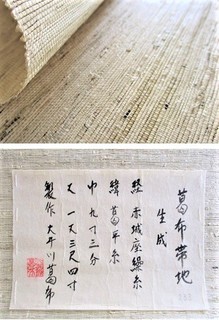 葛布帯地
生成
経 赤城座繰糸
緯 葛平糸
巾 九寸三分
丈 一丈三尺四寸
製作 大井川葛布